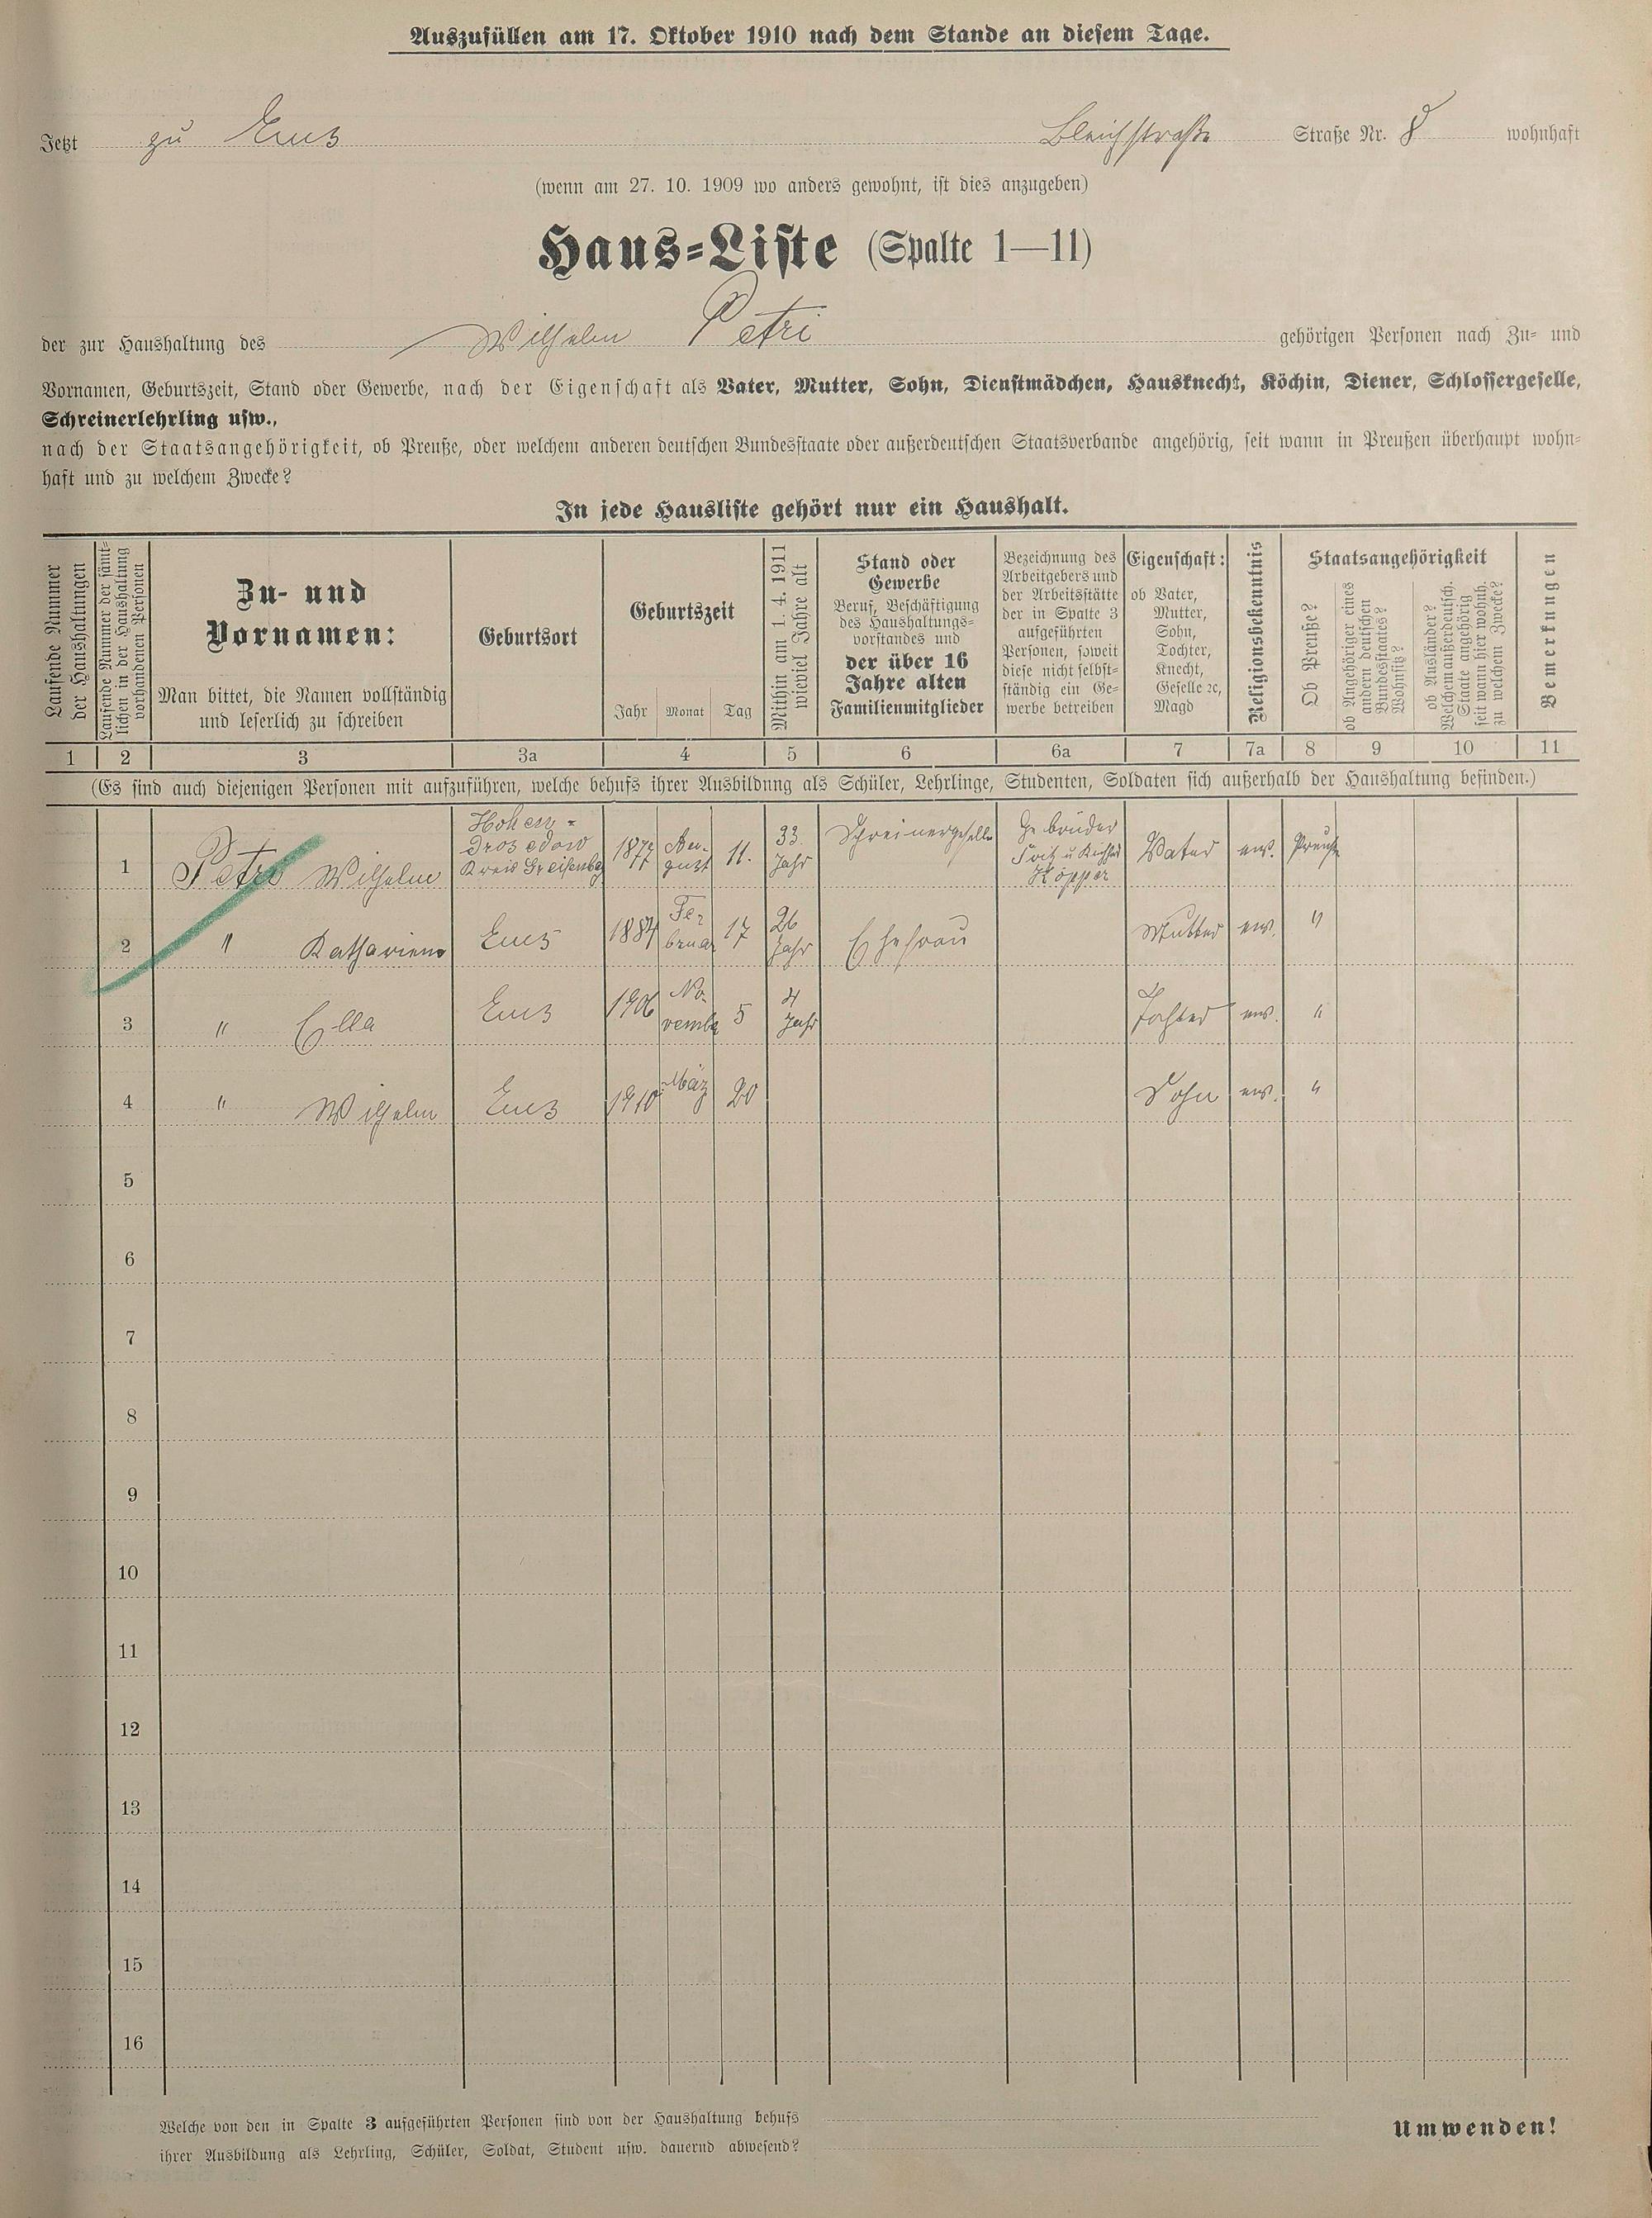 Auszufüllen am 17. Oktober 1910 nach dem Stande an diesem Tage.
Jetzt zu Ems Bleichstraße Straße Nr. 8 wohnhaft
(wenn am 27. 10. 1909 wo anders gewohnt, ist dies anzugeben)
Haus-Liste (Spalte 1—11)
der zur Haushaltung des Wilhelm Petri gehörigen Personen nach Zu- und
Vornamen, Geburtszeit, Stand oder Gewerbe, nach der Eigenschaft als Vater, Mutter, Sohn, Dienstmädchen, Hausknecht, Köchin, Diener, Schlossergeselle,
Schreinerlehrling usw.,
nach der Staatsangehörigkeit, ob Preuße, oder welchem anderen deutschen Bundesstaate oder außerdeutschen Staatsverbande angehörig, seit wann in Preußen überhaupt wohn-
haft und zu welchem Zwecke?
In jede Hausliste gehört nur ein Haushalt.
Laufende Nummer
der Haushaltungen
Laufende Nummer der sämt-
lichen in der Haushaltung
vorhandenen Personen
Zu- und
Vornamen:
Man bittet, die Namen vollständig
und leserlich zu schreiben
Geburtsort
Geburtszeit
Jahr Monat Tag
Mithin am 1. 4. 1911
wieviel Jahre alt
Stand oder
Gewerbe
Beruf, Beschäftigung
des Haushaltungs-
vorstandes und
der über 16
Jahre alten
Familienmitglieder
Bezeichnung des
Arbeitgebers und
der Arbeitsstätte
der in Spalte 3
aufgeführten
Personen, soweit
diese nicht selbst-
ständig ein Ge-
werbe betreiben
Eigenschaft:
ob Vater,
Mutter,
Sohn,
Tochter,
Knecht,
Geselle ꝛc,
Magd
Religionsbekenntnis
Staatsangehörigkeit
Ob Preuße?
ob Angehöriger eines
andern deutschen
Bundesstaates?
Wohnsitz?
ob Ausländer?
Welchem außerdeutsch.
Staate angehörig
seit wann hier wohnh.
zu welchem Zwecke?
Bemerkungen
1 2 3 3a 4 5 6 6a 7 7a 8 9 10 11
(Es sind auch diejenigen Personen mit aufzuführen, welche behufs ihrer Ausbildung als Schüler, Lehrlinge, Studenten, Soldaten sich außerhalb der Haushaltung befinden.)
1 Petri Wilhelm Hohen-
drosedow
Kreis Greifenberg 1877 Au-
gust 11. 33.
Jahr Schreinergeselle Gebrüder
Köpper Vater ev. Preuße
2 " Kathariena Ems 1884 Fe-
bruar 17 26
Jahr Ehefrau Mutter ev. "
3 " Ella Ems 1906 No-
vember 5 4
Jahr Tochter ev. "
4 " Wilhelm Ems 1910 März 20 Sohn ev. "
5
6
7
8
9
10
11
12
13
14
15
16
Welche von den in Spalte 3 aufgeführten Personen sind von der Haushaltung behufs
ihrer Ausbildung als Lehrling, Schüler, Soldat, Student usw. dauernd abwesend?
Umwenden!